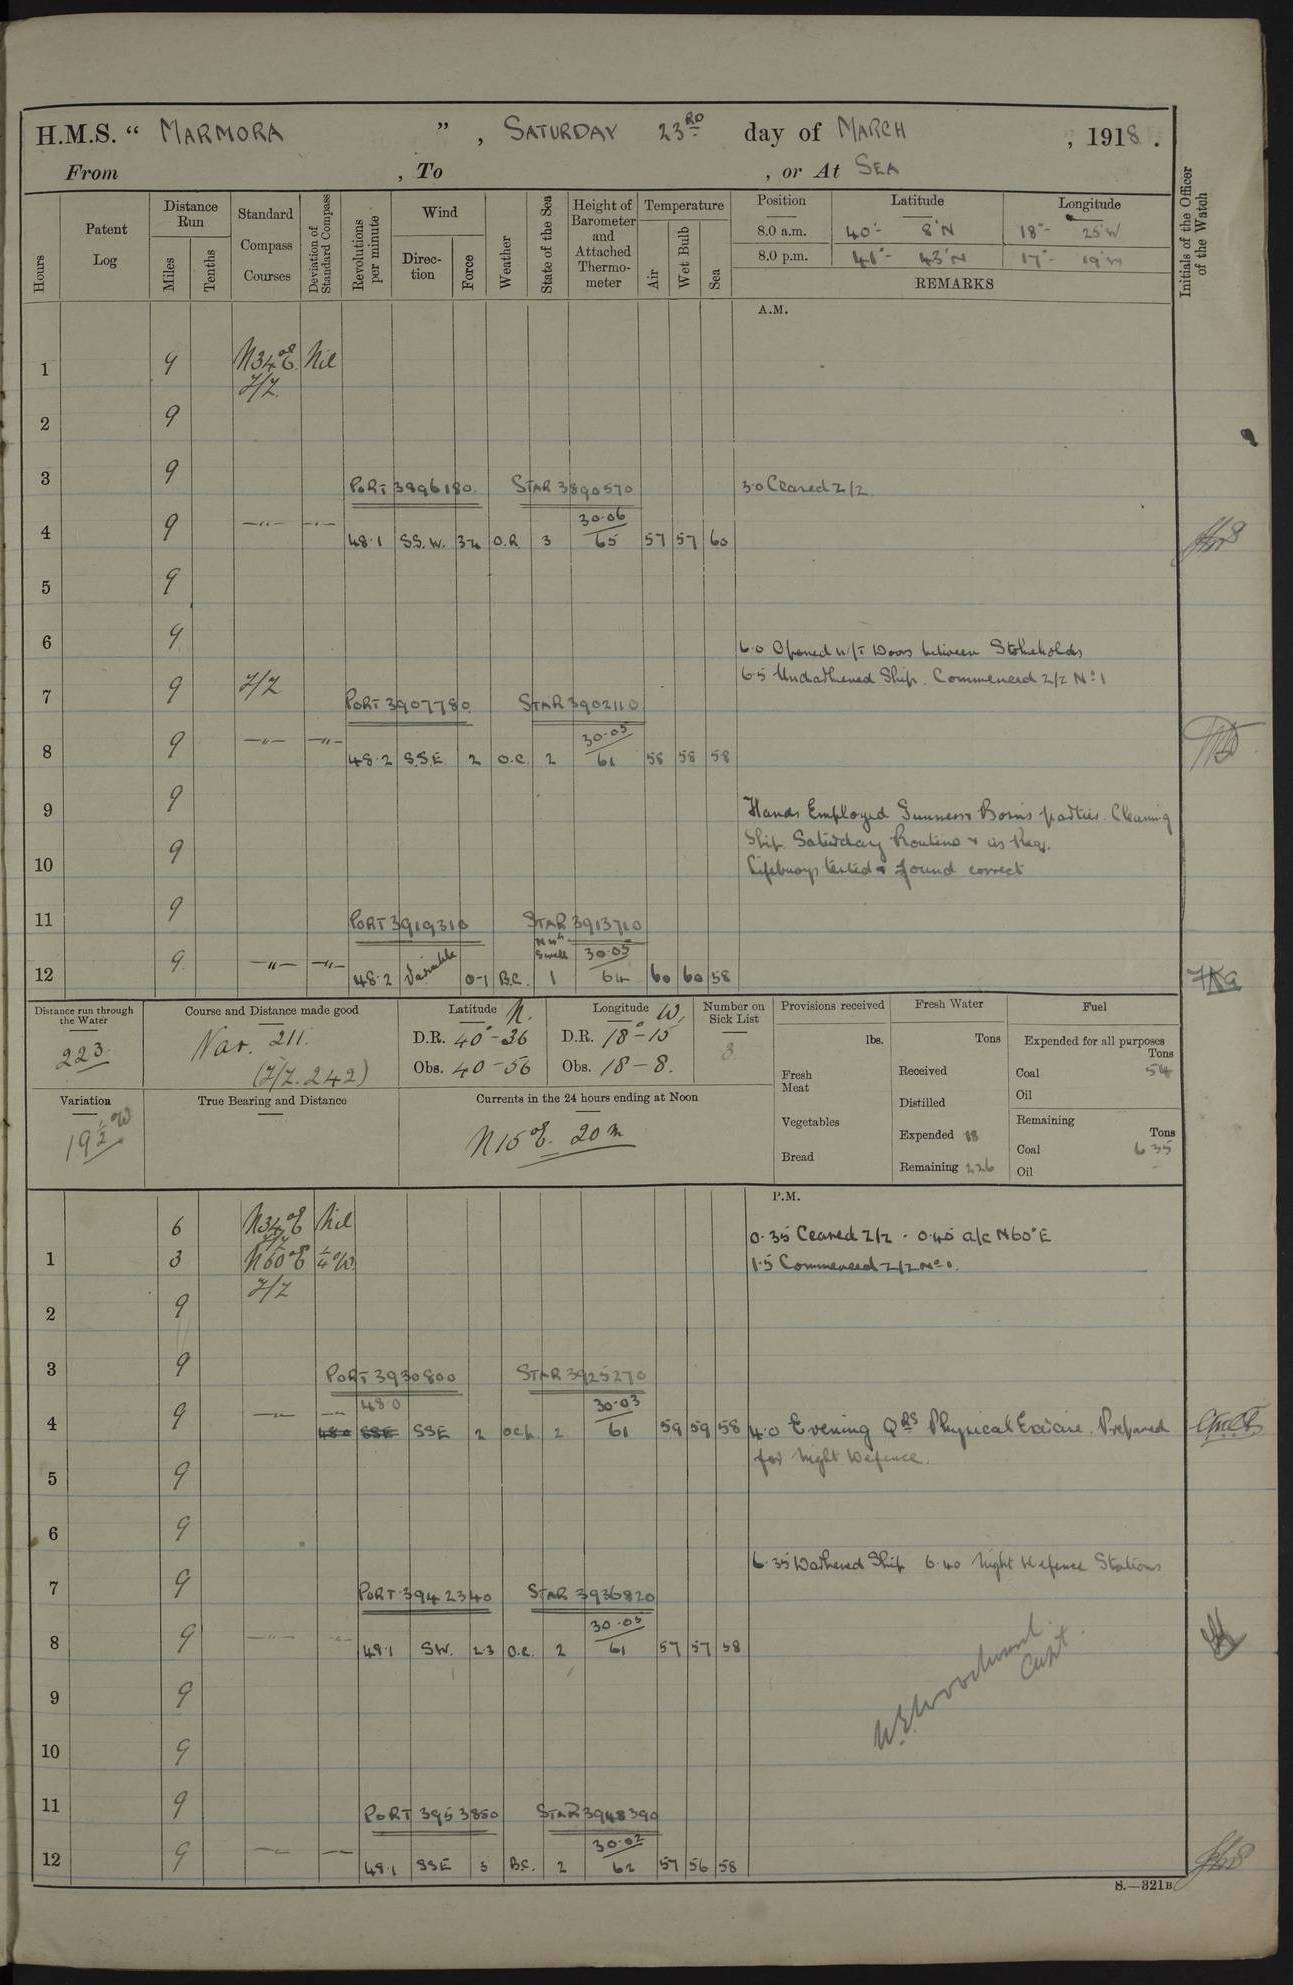 H.M.S. " MARMORA ", SATURDAY 23RD day of MARCH, 1918.
From , To , or At SEA
Hours
Patent Log
Distance Run
Miles
Tenths
Standard Compass Courses
Deviation of Standard Compass
Revolutions per minute
Wind
Direction
Force
Weather
State of the Sea
Height of Barometer and Attached Thermometer
Temperature
Air
Wet Bulb
Sea
Position Latitude Longitude
8.0 a.m. 40°- 8'N 18°- 25'W
8.0 p.m. 41°- 43'N 17°- 19'W
REMARKS
Initials of the Officer of the Watch
A.M.
1 9 N34°E Nil
Z/Z
2 9
3 9
PORT 3896180. STAR 3890570 3.0 Ceared Z/Z
4 9 —"— —"— 48.1 S.S.W. 3-4 O.R. 3 30.06 65 57 57 60
5 9
6 9 6.0 Opened W/T Doors between Stokeholds
6.5 Undarkened Ship. Commenced Z/Z No 1
7 9 Z/Z
PORT 3907780. STAR 3902110
8 9 —"— —"— 48.2 S.S.E 2 O.C. 2 30.05 61 58 58 58
9 9 Hands Employed Gunners & Bosins parties. Cleaning
Ship. Saturday Routine & as Req.
10 9 Lifebuoys tested & found correct
11 9
PORT 3919310 STAR 3913710
12 9 —"— —"— 48.2 Variable 0-1 B.C. Swell 1 30.05 64 60 60 58
Distance run through the Water
223
Course and Distance made good
Nav. 211.
(Z/Z. 242)
Latitude N.
D.R. 40°-36
Obs. 40-56
Longitude W.
D.R. 18°-15
Obs. 18-8.
Number on Sick List
3
Provisions received
lbs.
Fresh Meat
Vegetables
Bread
Fresh Water
Tons
Received
Distilled
Expended 18
Remaining 226
Fuel
Expended for all purposes
Tons
Coal 54
Oil
Remaining
Tons
Coal 635
Oil
Variation
19½°W
True Bearing and Distance
Currents in the 24 hours ending at Noon
N15°E. 20m
P.M.
6 N34°E Nil 0.35 Ceared Z/Z . 0.40 a/c N60°E
Z/Z
1 3 N60°E ¼°W. 1.5 Commenced Z/Z No 1.
Z/Z
2 9
3 9
PORT 3930800 STAR 3925270
48.0
4 9 —"— —"— 48.0 SSE SSE 2 OCP. 2 30.03 61 59 59 58 4.0 Evening QRS Physical Exercise. Prepared
for Night Defence.
5 9
6 9
6.35 Darkened Ship 6.40 Night Defence Stations
7 9
PORT 3942340 STAR 3936820
8 9 —"— —"— 48.1 SW. 2.3 O.C. 2 30.05 61 57 57 58
9 9
W.E. Woodward
Capt.
10 9
11 9
PORT 3953850 STAR 3948390
12 9 —"— —"— 48.1 SSE 3 B.C. 2 30.02 62 57 56 58
S.—321B.